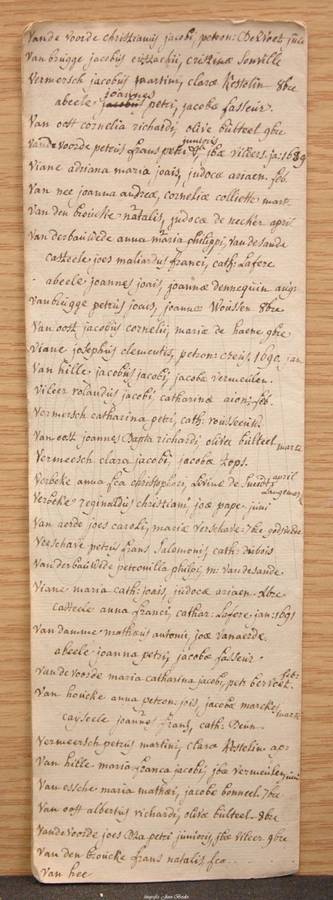 Van de Voorde christianus jacobi, petron: Dekoet juli
Van brugge jacobus eustachii, cristinæ Sonville
Vermersch jacobus martini, claræ Kestelin 8bre
joannes
abeele jacobus petri, jacobæ fasseur
Van oost cornelia richardi, olivæ bulteel 9bre
junioris
Van de voorde petrus frans petri, jbæ vileers. ja: 1689
Viane adriana maria joais, judocæ ariaen. feb.
Van nee joanna andreæ, corneliæ colliette mart.
Van den broucke natalis, judocæ de necker april
Van derbauwede anna maria philippi, van de sande
casteele joes maliardus franci, cath: Lafere
abeele joannes joais, joannæ Dennequin aug:
Van brugge petrus joais, joannæ Woussen 8bre
Van oost jacobus cornelii, mariæ de haene 9bre
Viane josephus clementis, petron: creus, 1690 jan
Van hille jacobus jacobi, jacobæ vermeulen.
Vileer rolandus jacobi catharinæ aion: feb.
Vermersch catharina petri, cath: rousseeuw
Van oost joannes Bapta richardi, olivæ bulteel marti
Vermeesch clara jacobi, jacobæ Zops.
Verbeke anna fca christophori, Livine de april
Verbeke reginaldus christiani joæ pape. juni
Van aerde joes caroli, mariæ verschave. 7bre
Verschave petrus frans Salomonis cath: dubois
Van derbauwede petronilla philipi, m: van de sande
Viane maria cath: joais, judocæ ariaen. xbre
Casteele anna franci, cathar: Lafere. jan: 1691
Van damme mathæus antonii, joæ van aerde.
abeele joanna petri, jacobæ fasseur.
Van de voorde maria catharina jacobi, petr bervoet. feb:
Van houcke anna petron: jois, jacobæ marckey marti
cayseele joannes frans, cath: Deun.
Vermeersch petrus martini, claræ Kestelin ap:
Van hille maria franca jacobi, jbæ vermeulen juni
Van essche maria mathæi, jacobæ bonneel 7bre
Van oost albertus richardi, olivæ bulteel. 8bre
Van de Voorde joes Bta petri junioris, jbæ vileer 9bre
Van den broucke frans natalis, fca
Van hee